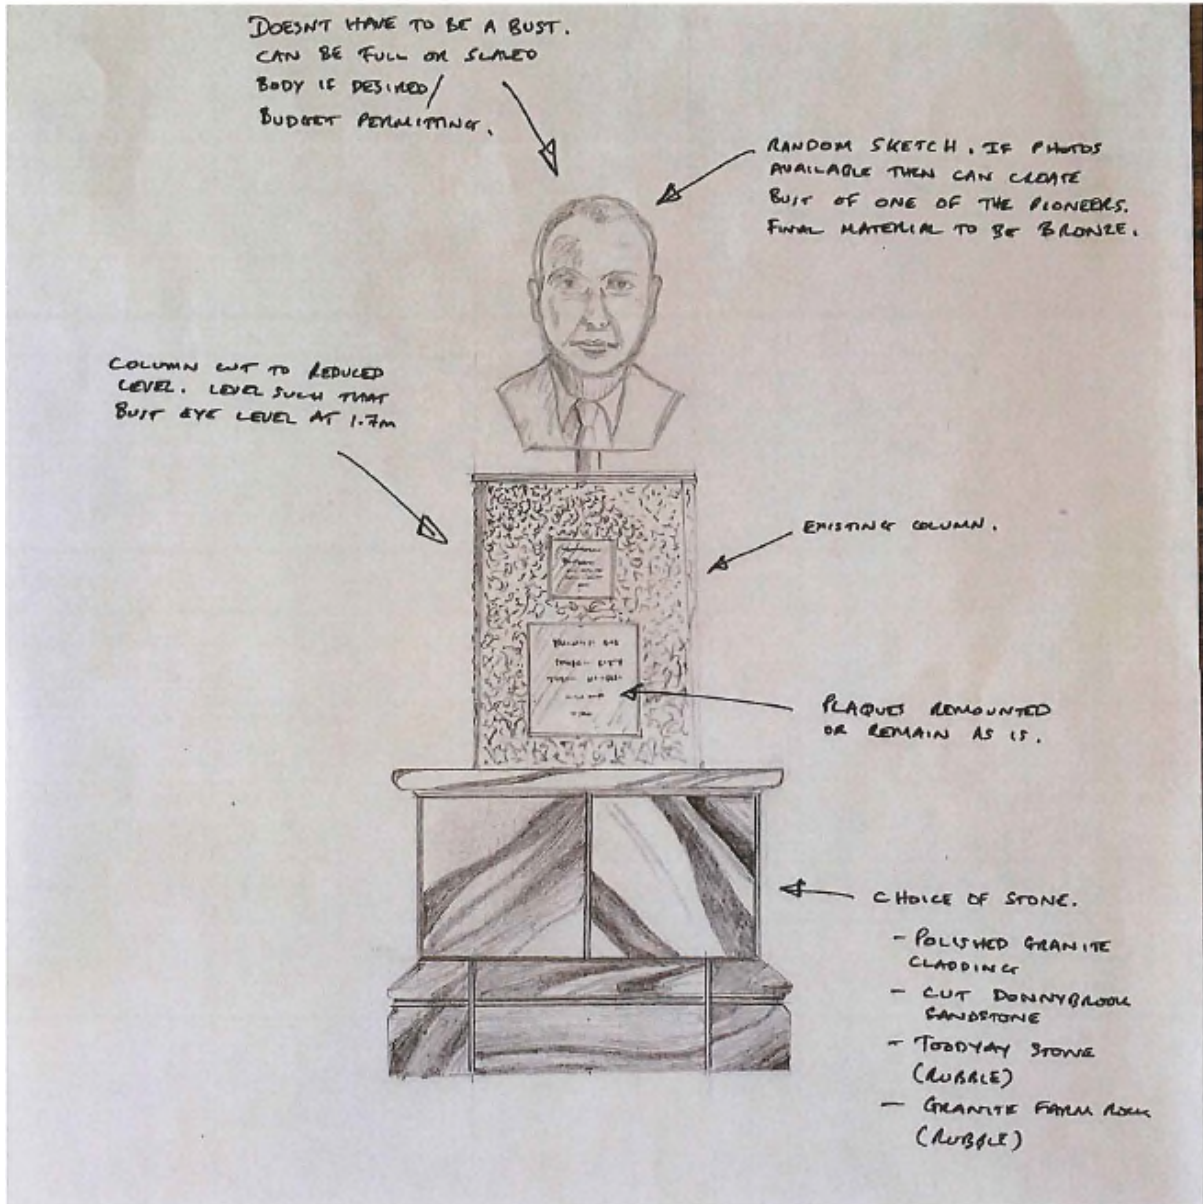 DOESN'T HAVE TO BE A BUST.
CAN BE FULL OR SCALED
BODY IF DESIRED/
BUDGET PERMITTING.
RANDOM SKETCH. IF PHOTOS
AVAILABLE THEN CAN CREATE
BUST OF ONE OF THE PIONEERS.
FINAL MATERIAL TO BE BRONZE.
COLUMN CUT TO REDUCED
LEVEL. LEVEL SUCH THAT
BUST EYE LEVEL AT 1.7m
EXISTING COLUMN.
PLAQUES REMOUNTED
OR REMAIN AS IS.
CHOICE OF STONE.
- POLISHED GRANITE
CLADDING
- CUT DONNYBROOK
SANDSTONE
- TOODYAY STONE
(RUBBLE)
- GRANITE FARM ROCK
(RUBBLE)